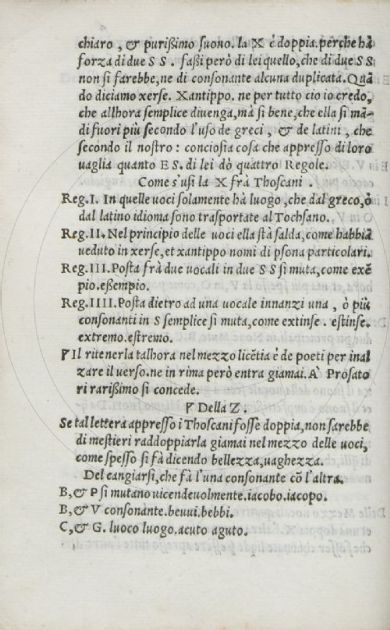 chiaro , & purißimo suono. la X è doppia. perche hà
forza di due S S . faßi però di lei quello, che di due S S
non si farebbe, ne di consonante alcuna duplicata. Quã
do diciamo xerse. Xantippo. ne per tutto cio io credo,
che allhora semplice diuenga, mà si bene, che ella si mã-
di fuori più secondo l'uso de greci , & de latini , che
secondo il nostro : conciosia cosa che appresso di loro
uaglia quanto E S. di lei dò quattro Regole.
Come s'usi la X frà Thoscani .
Reg. I. In quelle uoci solamente hà luogo , che dal greco, ò
dal latino idioma sono trasportate al Tochsano.
Reg. II. Nel principio delle uoci ella stà salda, come habbiã
ueduto in xerse, et xantippo nomi di psona particolari.
Reg. III. Posta frà due uocali in due S S si muta, come exẽ
pio. eßempio.
Reg. IIII. Posta dietro ad una uocale innanzi una , ò più
consonanti in S semplice si muta, come extinse . estinse.
extremo. estremo.
Il ritenerla talhora nel mezzo licẽtia è de poeti per inal
zare il uerso. ne in rima però entra giamai. A' Prosato
ri rarißimo si concede.
Della Z .
Se tal lettera appresso i Thoscani fosse doppia, non sarebbe
di mestieri raddoppiarla giamai nel mezzo delle uoci,
come spesso si fà dicendo bellezza, uaghezza.
Del cangiarsi, che fà l'una consonante cõ l'altra.
B, & P si mutano uicendeuolmente. iacobo. iacopo.
B, & V consonante. beuui. bebbi.
C, & G. luoco luogo. acuto aguto.